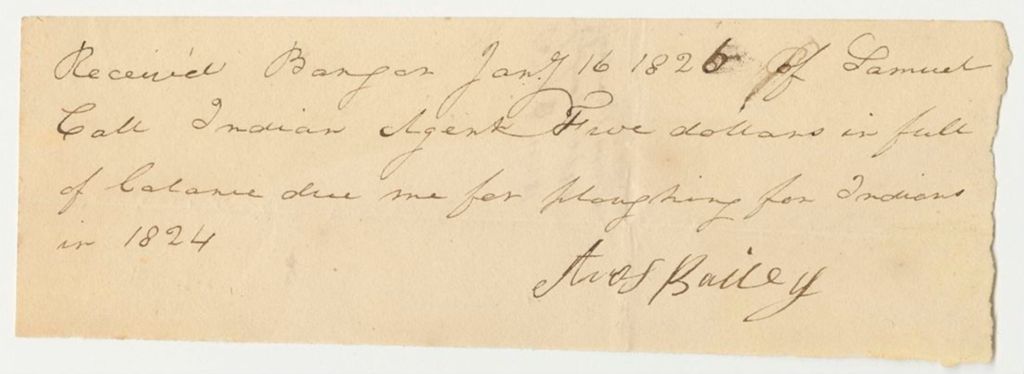 Received Bangor Jany 16 1826 of Samuel
Call Indian Agent Five dollars in full
of balance due me for ploughing for Indians
in 1824
Amos Bailey